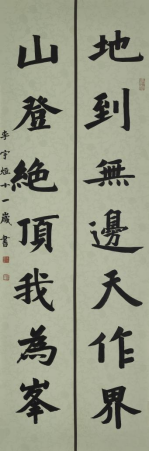 地到無邊天作界
山登絕頂我為峯
李宇烜十一歲書